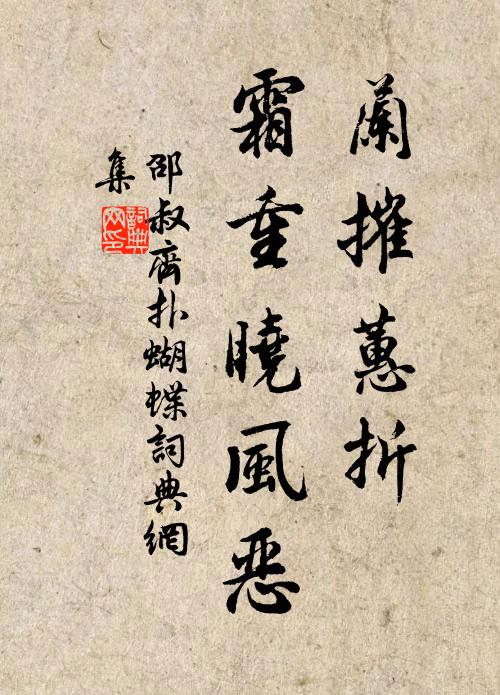 蘭摧蕙折
霜重曉風惡
邵叔齊扑蝴蝶詞典網
集
詞典網印